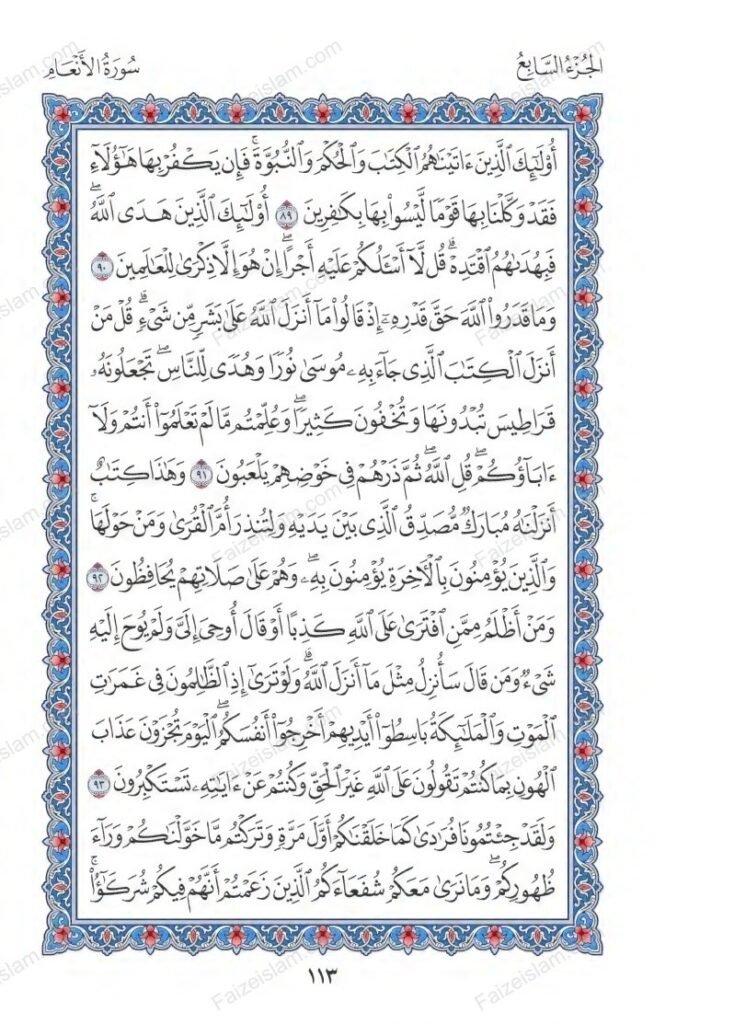 الجُزْءُ السَّابِعُ
سُورَةُ الأَنْعَامِ
أُوْلَٰٓئِكَ ٱلَّذِينَ ءَاتَيْنَٰهُمُ ٱلْكِتَٰبَ وَٱلْحُكْمَ وَٱلنُّبُوَّةَۚ فَإِن يَكْفُرْ بِهَا هَٰٓؤُلَآءِ
فَقَدْ وَكَّلْنَا بِهَا قَوْمًا لَّيْسُوا۟ بِهَا بِكَٰفِرِينَ ٨٩ أُوْلَٰٓئِكَ ٱلَّذِينَ هَدَى ٱللَّهُۖ
فَبِهُدَىٰهُمُ ٱقْتَدِهْۗ قُل لَّآ أَسْـَٔلُكُمْ عَلَيْهِ أَجْرًاۖ إِنْ هُوَ إِلَّا ذِكْرَىٰ لِلْعَٰلَمِينَ ٩٠
وَمَا قَدَرُوا۟ ٱللَّهَ حَقَّ قَدْرِهِۦٓ إِذْ قَالُوا۟ مَآ أَنزَلَ ٱللَّهُ عَلَىٰ بَشَرٍ مِّن شَىْءٍۗ قُلْ مَنْ
أَنزَلَ ٱلْكِتَٰبَ ٱلَّذِى جَآءَ بِهِۦ مُوسَىٰ نُورًا وَهُدًى لِّلنَّاسِۖ تَجْعَلُونَهُۥ
قَرَاطِيسَ تُبْدُونَهَا وَتُخْفُونَ كَثِيرًاۖ وَعُلِّمْتُم مَّا لَمْ تَعْلَمُوٓا۟ أَنتُمْ وَلَآ
ءَابَآؤُكُمْۖ قُلِ ٱللَّهُۖ ثُمَّ ذَرْهُمْ فِى خَوْضِهِمْ يَلْعَبُونَ ٩١ وَهَٰذَا كِتَٰبٌ
أَنزَلْنَٰهُ مُبَارَكٌ مُّصَدِّقُ ٱلَّذِى بَيْنَ يَدَيْهِ وَلِتُنذِرَ أُمَّ ٱلْقُرَىٰ وَمَنْ حَوْلَهَاۚ
وَٱلَّذِينَ يُؤْمِنُونَ بِٱلْءَاخِرَةِ يُؤْمِنُونَ بِهِۦۖ وَهُمْ عَلَىٰ صَلَاتِهِمْ يُحَافِظُونَ ٩٢
وَمَنْ أَظْلَمُ مِمَّنِ ٱفْتَرَىٰ عَلَى ٱللَّهِ كَذِبًا أَوْ قَالَ أُوحِىَ إِلَىَّ وَلَمْ يُوحَ إِلَيْهِ
شَىْءٌ وَمَن قَالَ سَأُنزِلُ مِثْلَ مَآ أَنزَلَ ٱللَّهُۗ وَلَوْ تَرَىٰٓ إِذِ ٱلظَّٰلِمُونَ فِى غَمَرَٰتِ
ٱلْمَوْتِ وَٱلْمَلَٰٓئِكَةُ بَاسِطُوٓا۟ أَيْدِيهِمْ أَخْرِجُوٓا۟ أَنفُسَكُمُۖ ٱلْيَوْمَ تُجْزَوْنَ عَذَابَ
ٱلْهُونِ بِمَا كُنتُمْ تَقُولُونَ عَلَى ٱللَّهِ غَيْرَ ٱلْحَقِّ وَكُنتُمْ عَنْ ءَايَٰتِهِۦ تَسْتَكْبِرُونَ ٩٣
وَلَقَدْ جِئْتُمُونَا فُرَٰدَىٰ كَمَا خَلَقْنَٰكُمْ أَوَّلَ مَرَّةٍ وَتَرَكْتُم مَّا خَوَّلْنَٰكُمْ وَرَآءَ
ظُهُورِكُمْۖ وَمَا نَرَىٰ مَعَكُمْ شُفَعَآءَكُمُ ٱلَّذِينَ زَعَمْتُمْ أَنَّهُمْ فِيكُمْ شُرَكَٰٓؤُا۟ۚ
١١٣
Faizeislam.com